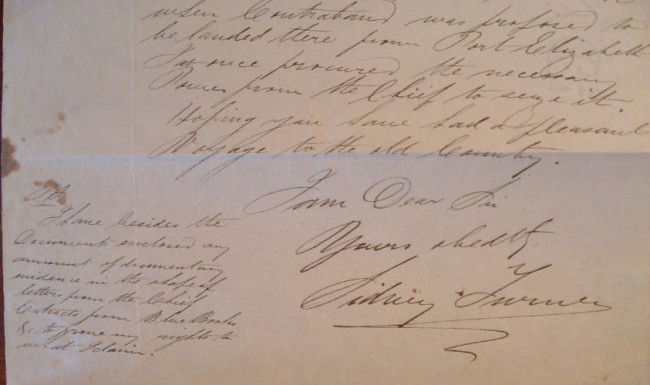 when Contraband was proposed to
be landed there from Port Elizabeth
I at once procured the necessary
Power from the Chief to seize it.
Hoping you have had a pleasant
Voyage to the old Country.
I am Dear Sir
Yours obedtly.
Sidney Turner
I have besides the
Document enclosed any
amount of documentary
evidence in the shape of
letters from the Chief
Extracts from Blue Books
&c to prove my rights to
what I claim.